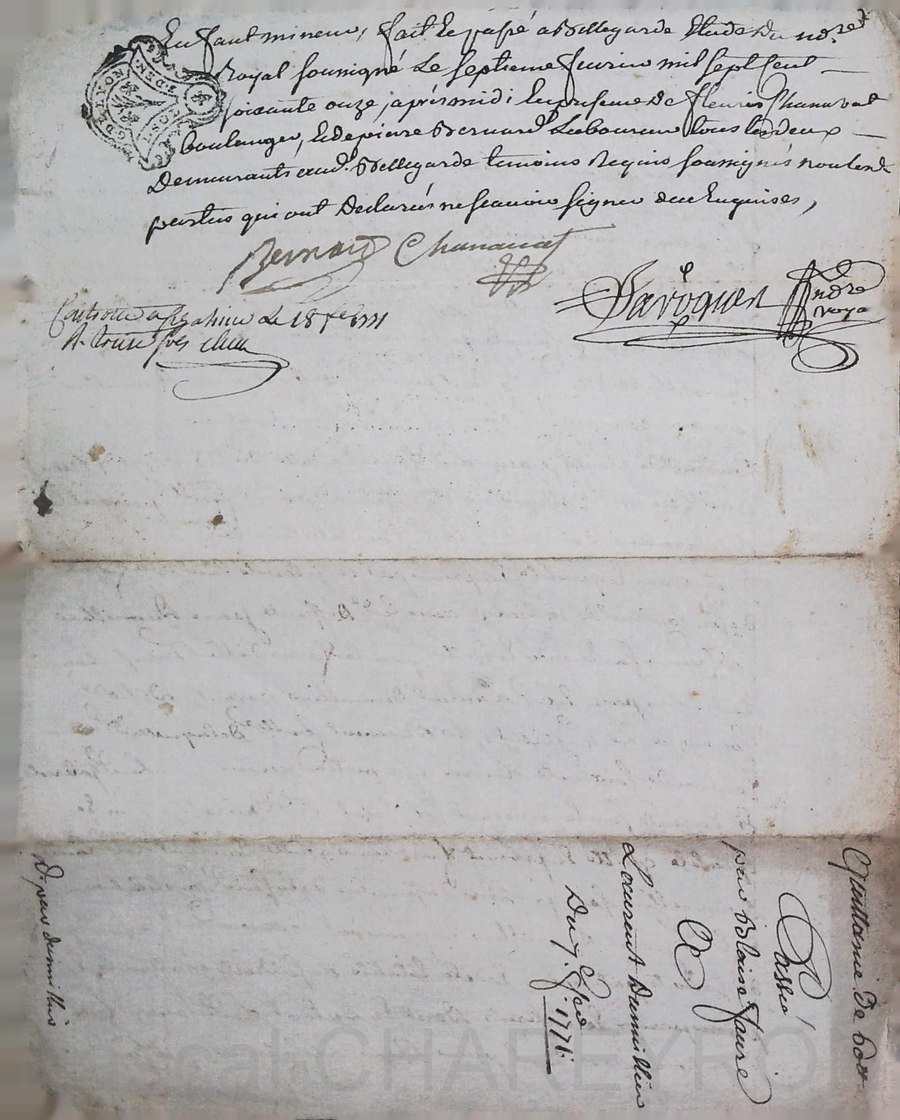 Enfant mineur, fait et passé a Bellegarde Etude du no.re
Royal soussigné Le septieme fevrier mil sept cent
soixante onze, apres midi, En presence de fleuris Chanavat
boulanger, et de pierre Bernard Laboureur tous les deux
Demeurants aud. Bellegarde temoins Requis soussignés non les d.
parties qui ont Declarés ne scavoir signer de ce Enquises,
Bernard Chanavat
no.re
royal
Controllé a le 18 fe 1771
GDE LYON
Quittance De 60tt
Passé
par Blaise faure
A
Laurent Dumillier
Du 7. fev. 1771.